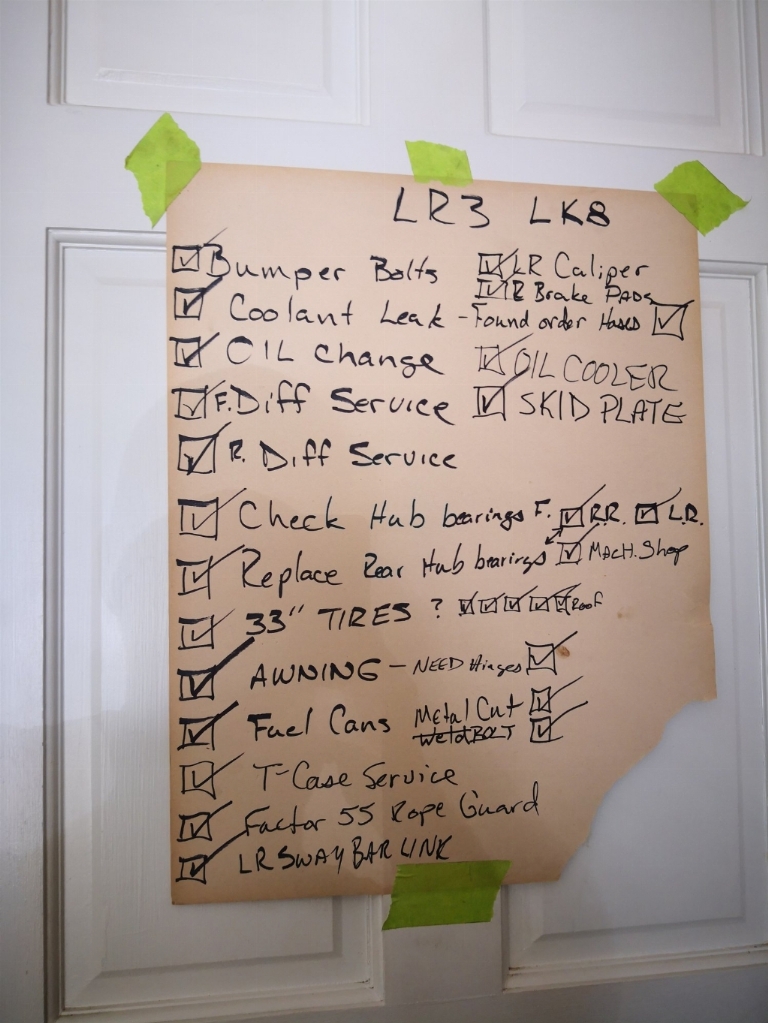 LR3 LK8
Bumper Bolts
LR Caliper
R Brake PADS
Coolant Leak - Found order Hoses
OIL Change
OIL COOLER
F. Diff Service
SKID PLATE
R. Diff Service
Check Hub bearings F. R.R. L.R.
Replace Rear Hub bearings MACH. Shop
33" TIRES ? Roof
AWNING - NEED Hinges
Fuel Cans Metal Cut
Weld BOLT
T-Case Service
Factor 55 Rope Guard
LR SWAY BAR LINK